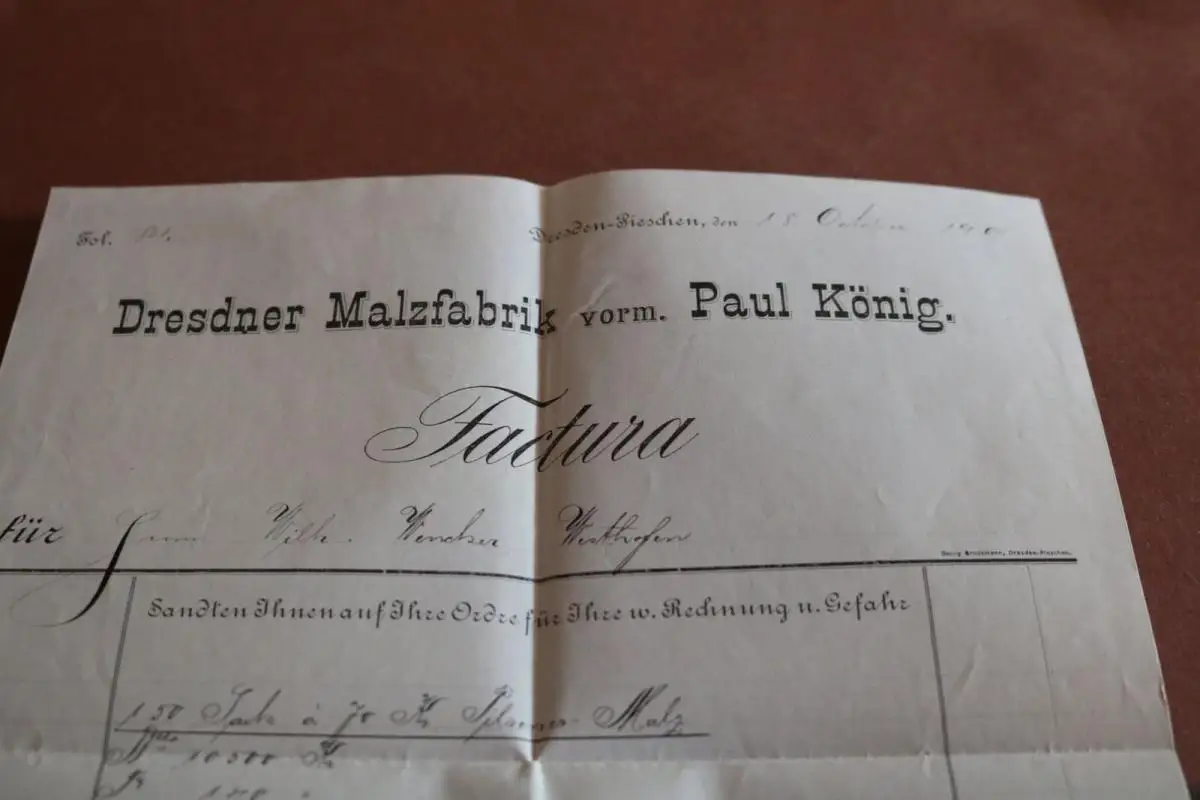 Fol.
Dresden-Pieschen, den 18 October 190
Dresdner Malzfabrik vorm. Paul König.
Factura
für Herrn Wilh. Westhofen
Georg Brückmann, Dresden-Pieschen.
Sandten Ihnen auf Ihre Ordre für Ihre w. Rechnung u. Gefahr
150 Sack à 70 K Pilsner-Malz
10500 K